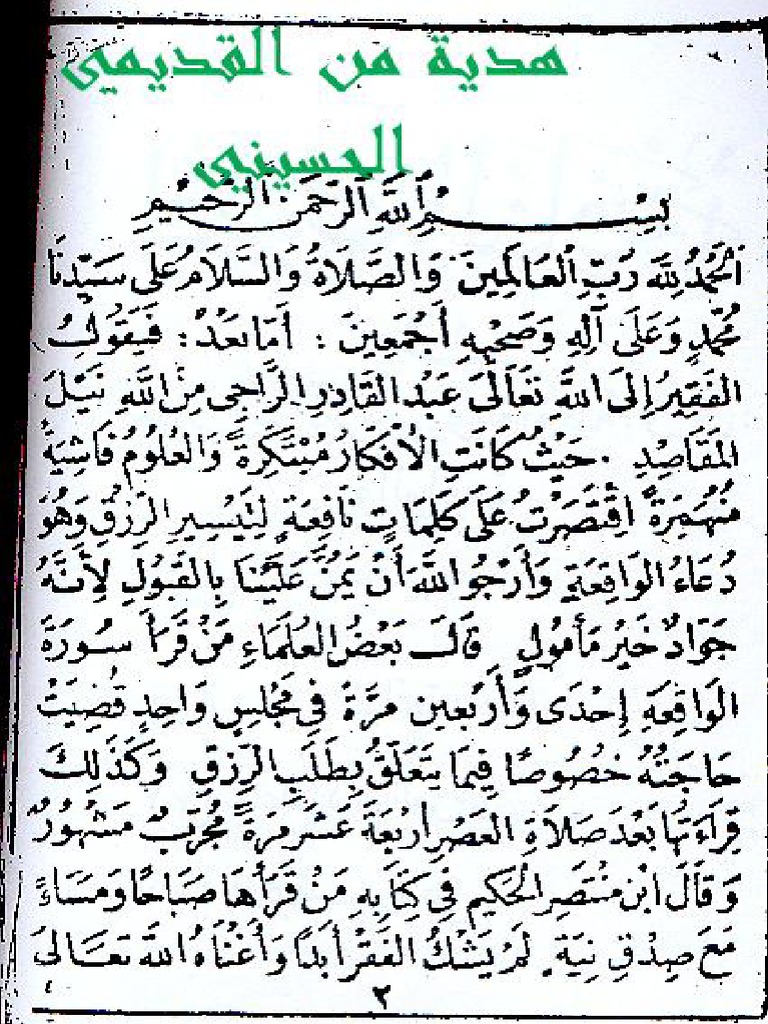 هدية من القديمي
الحسيني
بِسْمِ اللَّهِ الرَّحْمَنِ الرَّحِيمِ
اَلْحَمْدُ لِلَّهِ رَبِّ الْعَالَمِينَ وَالصَّلَاةُ وَالسَّلَامُ عَلَى سَيِّدِنَا
مُحَمَّدٍ وَعَلَى آلِهِ وَصَحْبِهِ أَجْمَعِينَ : أَمَّا بَعْدُ : فَيَقُولُ
الفَقِيرُ إِلَى اللَّهِ تَعَالَى عَبْدُ القَادِرِ الرَّاجِى مِنَ اللَّهِ نَيْلَ
المَقَاصِدِ . حَيْثُ كَانَتِ الْأَفْكَارُ مُبْتَكِرَةً وَالعُلُومُ فَاشِيَةً
مُنْهَمِرَةً اقْتَصَرْتُ عَلَى كَلِمَاتٍ نَافِعَةٍ لِتَيْسِيرِ الرِّزْقِ وَهُوَ
دُعَاءُ الوَاقِعَةِ وَأَرْجُو اللَّهَ أَنْ يَمُنَّ عَلَيْنَا بِالقَبُولِ لِأَنَّهُ
جَوَادٌ خَيْرُ مَأْمُولٍ قَالَ بَعْضُ العُلَمَاءِ مَنْ قَرَأَ سُورَةَ
الوَاقِعَةِ إِحْدَى وَأَرْبَعِينَ مَرَّةً فِى مَجْلِسٍ وَاحِدٍ قُضِيَتْ
حَاجَتُهُ خُصُوصًا فِيمَا يَتَعَلَّقُ بِطَلَبِ الرِّزْقِ وَكَذَلِكَ
قِرَاءَتُهَا بَعْدَ صَلَاةِ العَصْرِ اَرْبَعَةَ عَشَرَ مَرَّةً مُجَرَّبٌ مَشْهُورٌ
وَقَالَ ابْنُ مُنْتَصِرِ الْحَكِيمِ فِى كِتَابِهِ مَنْ قَرَأَهَا صَبَاحًا وَمَسَاءً
مَعَ صِدْقِ نِيَّةٍ لَمْ يَشْكُ الفَقْرَ أَبَدًا وَأَغْنَاهُ اللَّهُ تَعَالَى
٢